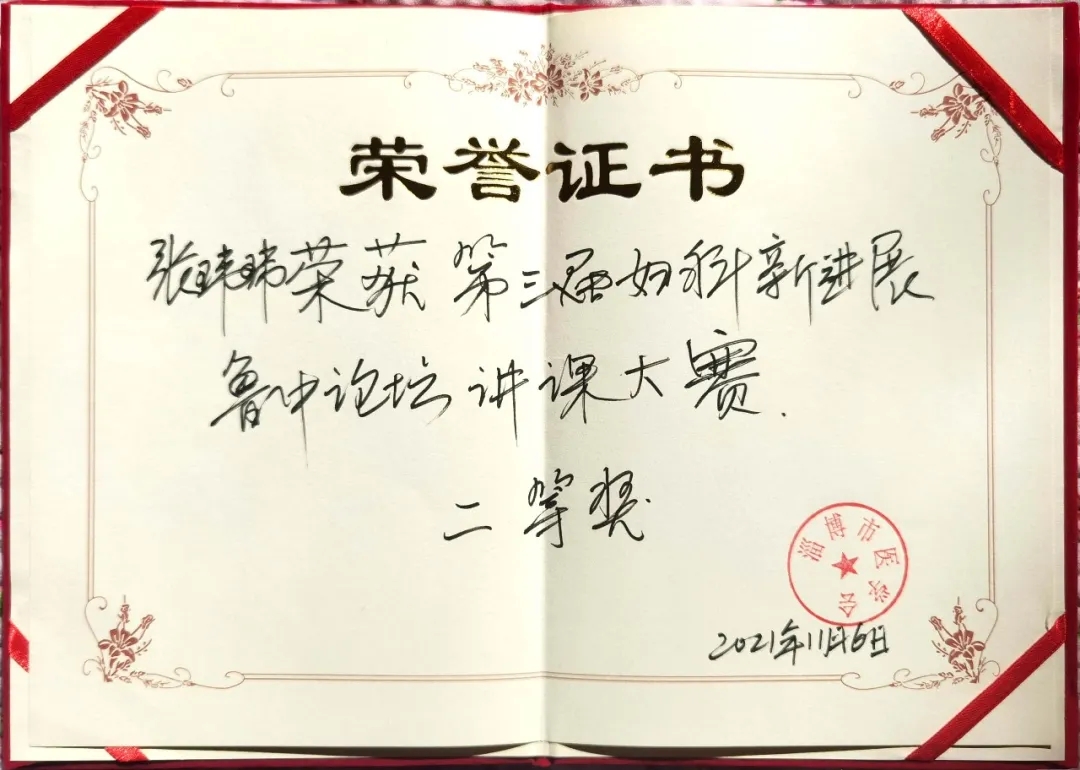 荣誉证书
张玮玮荣获第三届妇科新进展
鲁中论坛讲课大赛.
二等奖.
淄博市医学会
2021年11月6日